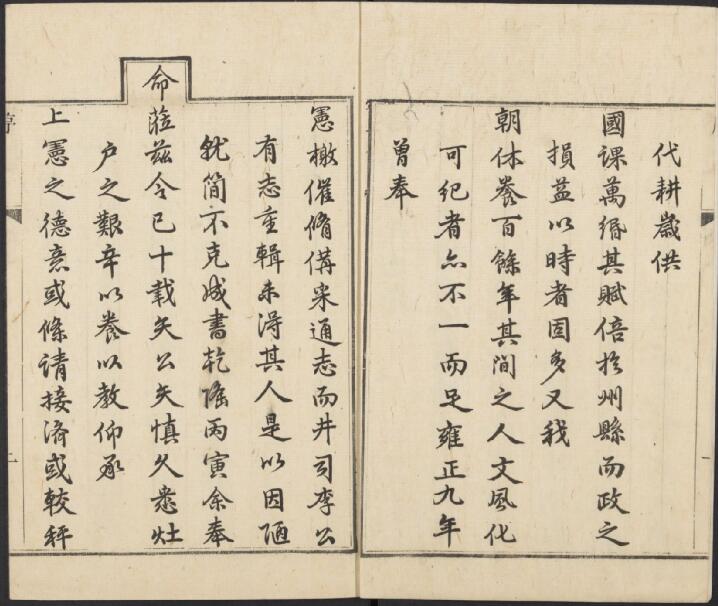 代耕歲供
國課萬緡其賦倍於州縣而政之
損益以時者固多又我
朝休養百餘年其間之人文風化
可紀者亦不一而足雍正九年
曾奉
憲檄催脩備采通志而井司李公
有志重輯未得其人是以因陋
就簡不克成書乾隆丙寅余奉
命蒞茲今已十載矢公矢慎久悉灶
户之艱辛以養以教仰承
上憲之德意或條請接濟或較秤